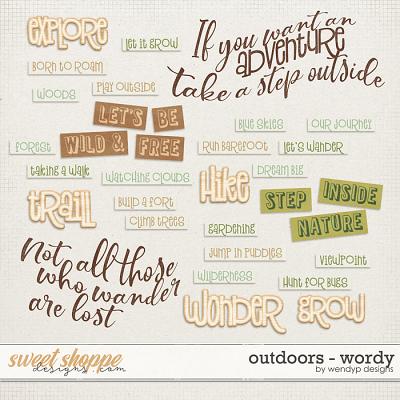 explore
let it grow
If you want an
ADVENTURE
take a step outside
born to roam
woods
play outside
LET'S BE
WILD & FREE
blue skies
our journey
forest
run barefoot
let's wander
taking a walk
watching clouds
hike
dream big
STEP INSIDE
NATURE
trail
build a fort
climb trees
gardening
Not all those
who wander
are lost
jump in puddles
viewpoint
wilderness
hunt for bugs
wonder
grow
sweet shoppe
designs.com
outdoors - wordy
by wendyp designs